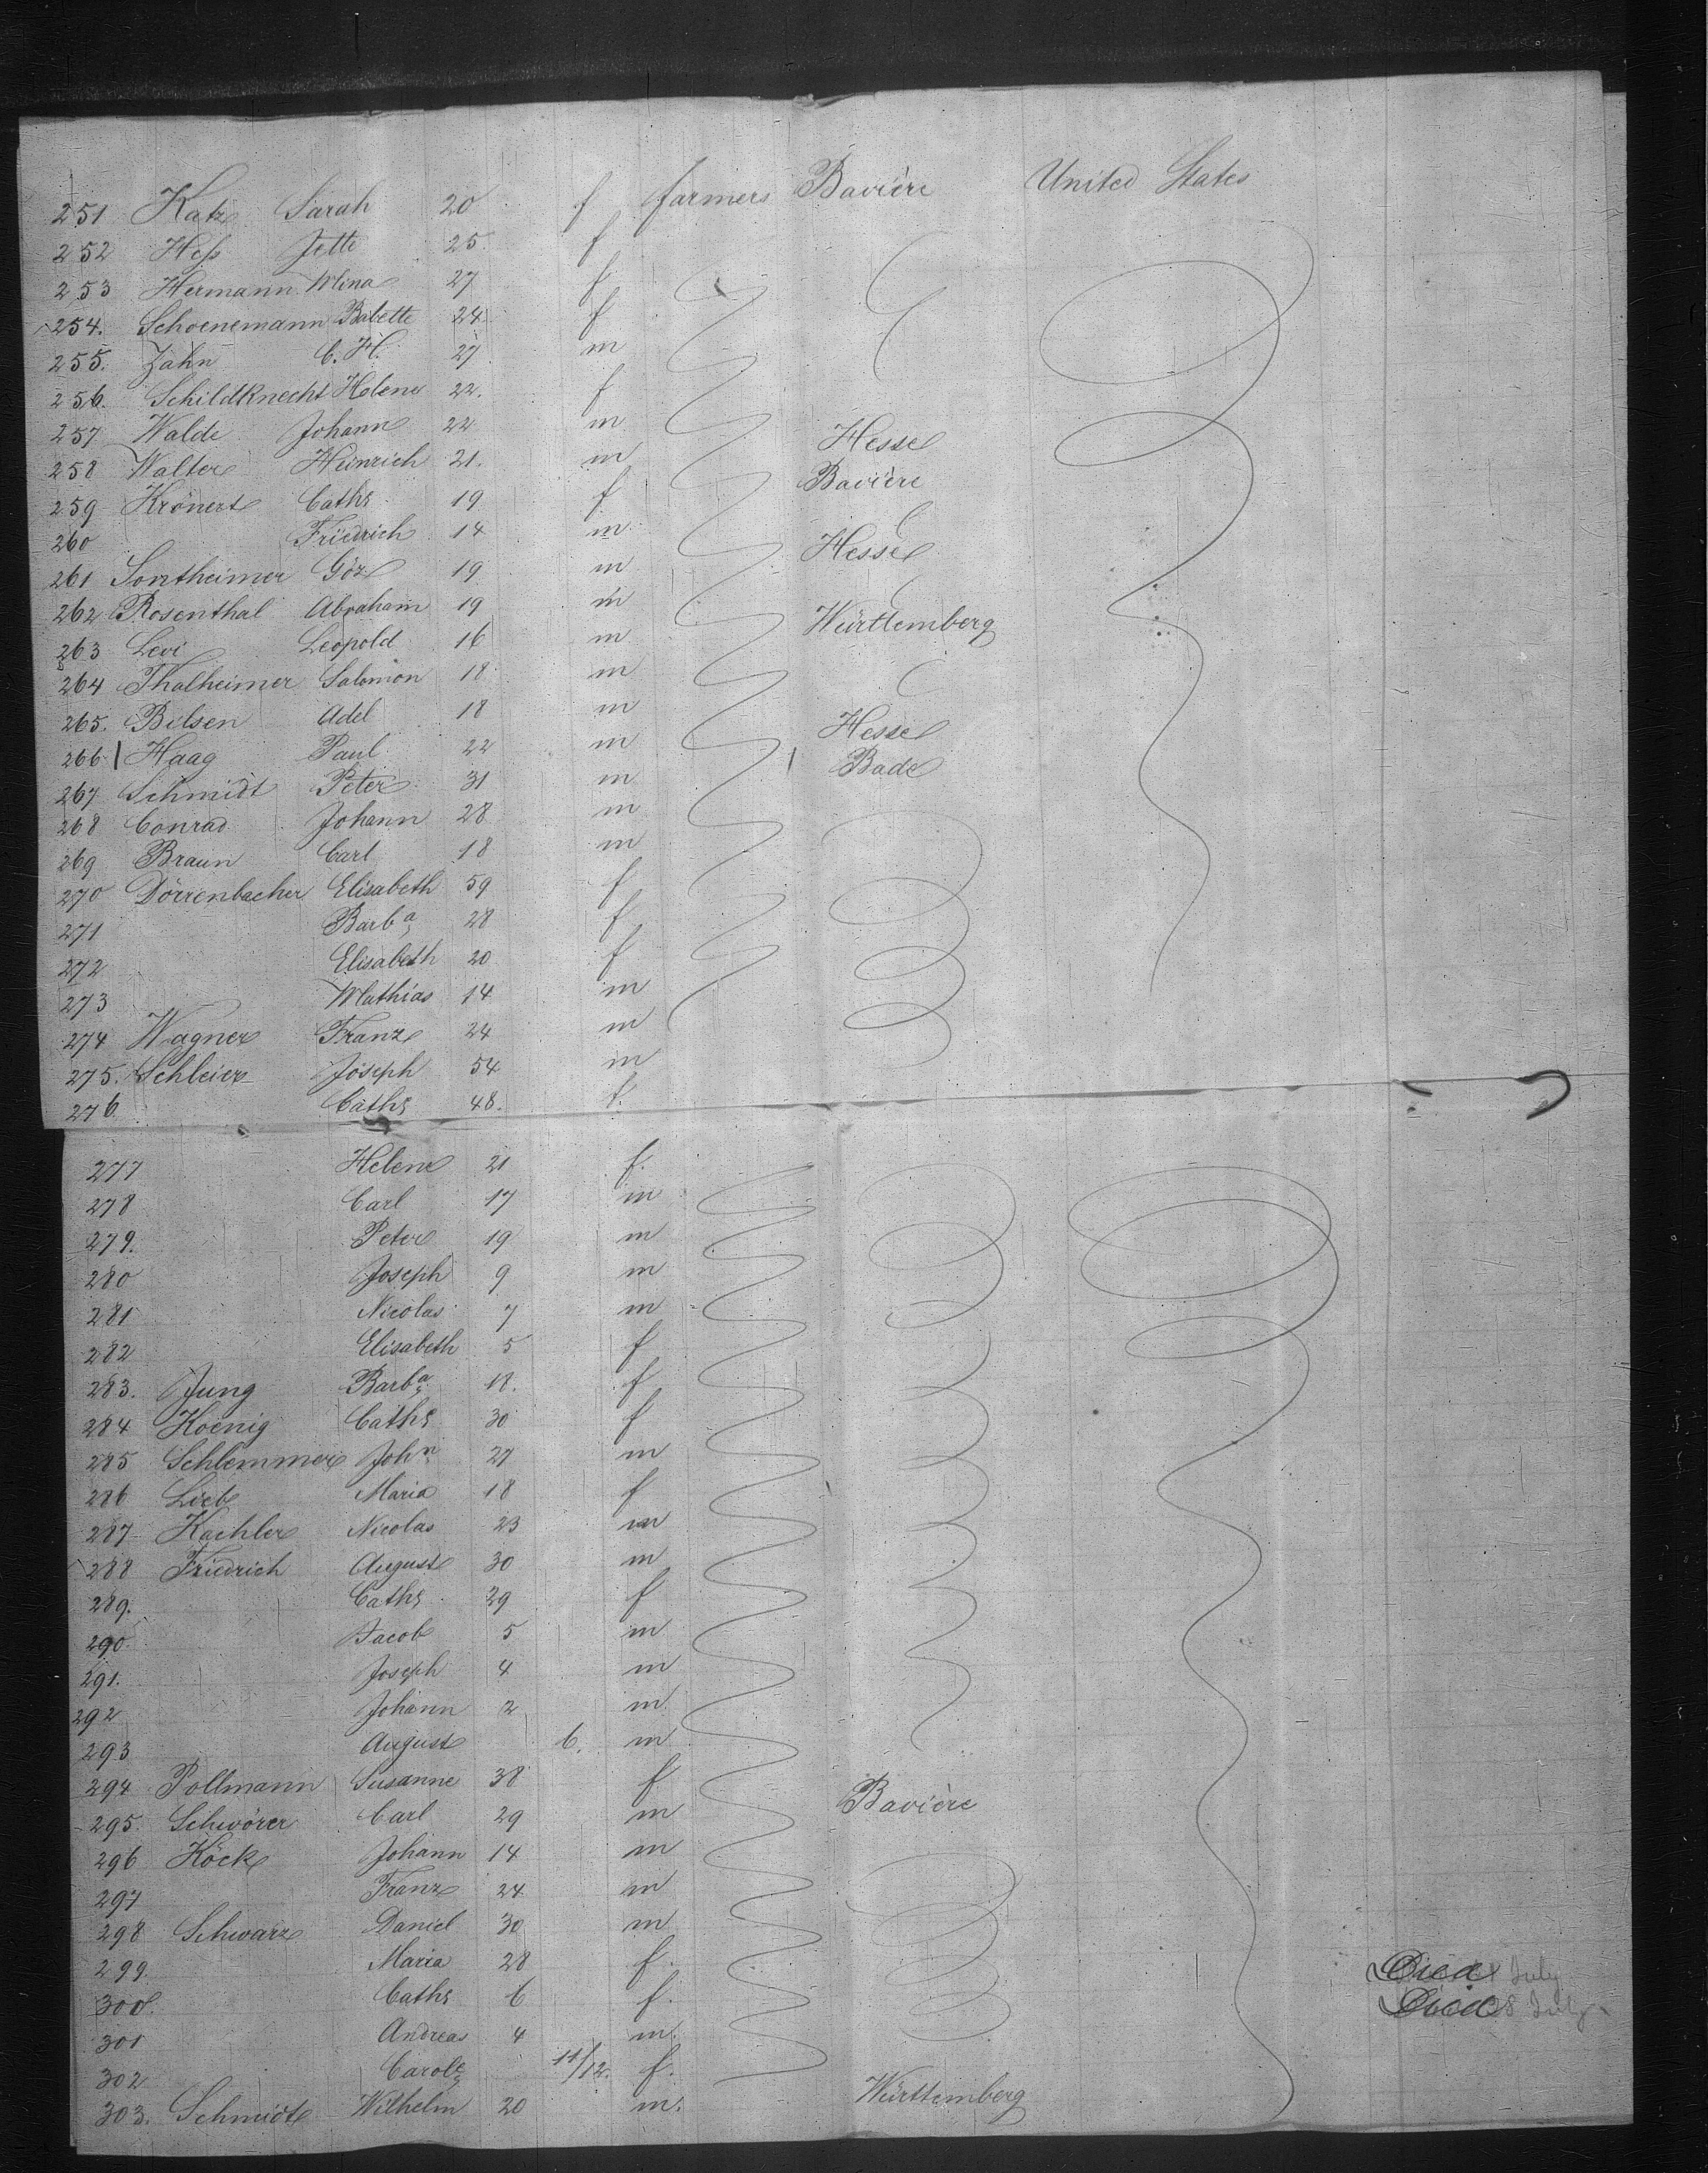 251 Katz Sarah 20 f farmers Bavière United States
252 Heſs Jette 25 f
253 Hermann Mina 27 f
254. Schoenemann Babette 24 f
255. Zahn C. H. 27 m
256. Schildknecht Helene 22. f
257 Walde Johann 22 m Hesse
258 Walter Heinrich 21. m Bavière
259 Krönert Cathe 19 f
260 Friedrich 14 m Hesse
261 Sontheimer Göz 19 m
262 Rosenthal Abraham 19 m Württemberg
263 Levi Leopold 16 m
264 Thalheimer Salomon 18 m
265. Bilsen Adel 18 m Hesse
266 Haag Paul 22 m Bade
267 Schmidt Peter 31 m
268 Conrad Johann 28 m
269 Braun Carl 18 m
270 Dörrenbacher Elisabeth 59 f
271 Barba 28 f
272 Elisabeth 20 f
273 Mathias 14 m
274 Wagner Franz 24 m
275. Schleier Joseph 54 m
276 Cathe 48. f.
277 Helene 21 f.
278 Carl 17 m
279. Peter 19 m
280 Joseph 9 m
281 Nicolas 7 m
282 Elisabeth 5 f
283. Jung Barba 18. f
284 Koenig Cathe 30 f
285 Schlemmer John 27 m
286 Lieb Maria 18 f
287 Kachler Nicolas 23 m
288 Friedrich August 30 m
289. Cathe 29 f
290. Jacob 5 m
291. Joseph 4 m
292 Johann 2 m
293 August 6. m
294 Pollmann Susanne 38 f
295. Schwörer Carl 29 m Bavière
296 Köck Johann 14 m
297 Franz 24 m
298 Schwarz Daniel 30 m
299. Maria 28 f.
300. Cathe 6 f. Died July
301 Andreas 4 m. Died 28 July
302 Carole 11/12. f.
303. Schmidt Wilhelm 20 m. Württemberg